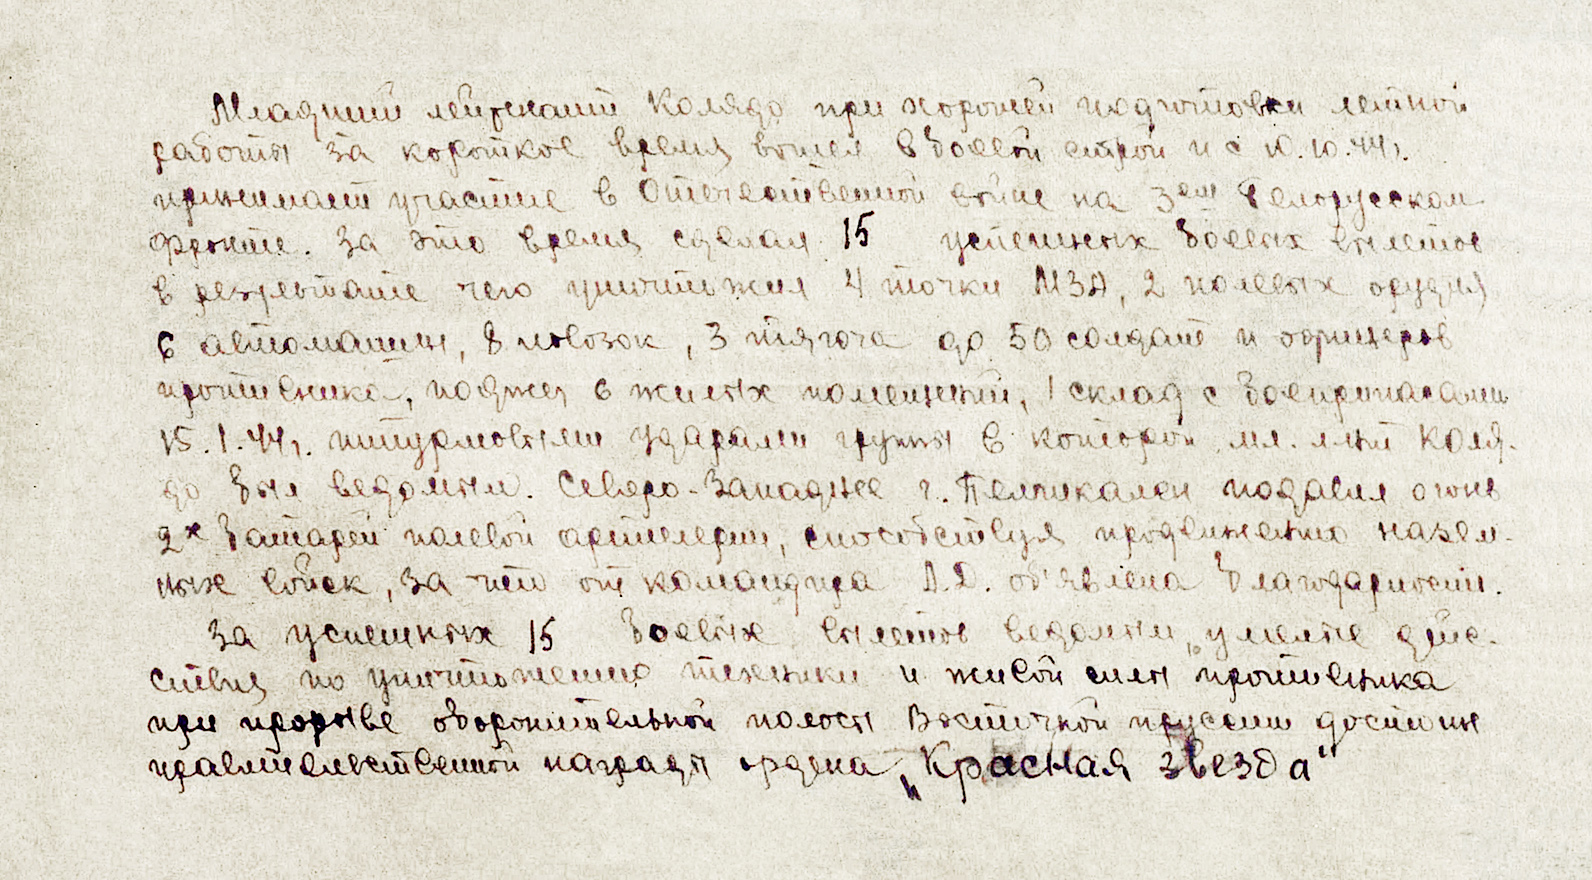 Младший лейтенант Колядо при хорошей подготовки летной
работы за короткое время вошел в боевой строй и с 10.10.44г.
принимает участие в Отечественной войне на 3ем Белорусском
Фронте. За это время сделал 15 успешных боевых вылетов
в результате чего уничтожил 4 точки МЗА, 2 полевых орудия
6 автомашин, 8 повозок, 3 тягоча до 50 солдат и офицеров
противника, поджег 6 жилых помещений, 1 склад с боеприпасами
15.1.44г. штурмовыми ударами группы в которой мл. л-нт Коля-
до был ведомым. Северо-Западнее г. Пелликален подавил огонь
2х батарей полевой артилерии, способствуя продвижению назем-
ных войск, за что от командира А.Д. об'явлена благодарность.
За успешных 15 боевых вылетов ведомым, умелые дейс-
ствия по уничтожению техники и живой силы противника
при прорыве оборонительной полосы Восточной пруссии достоин
правительственной награды ордена „Красная звезда"